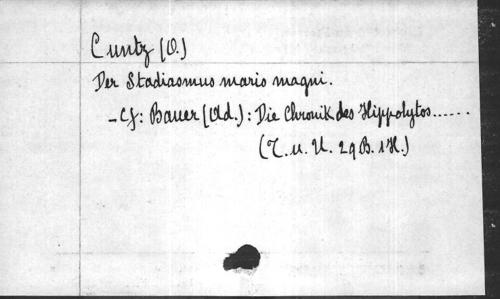 Cuntz (O.)
Der Stadiasmus maris magni.
- Cf: Bauer (Ad.): Die Chronik des Hippolytos......
(T. u. U. 29 B. 1 H.)